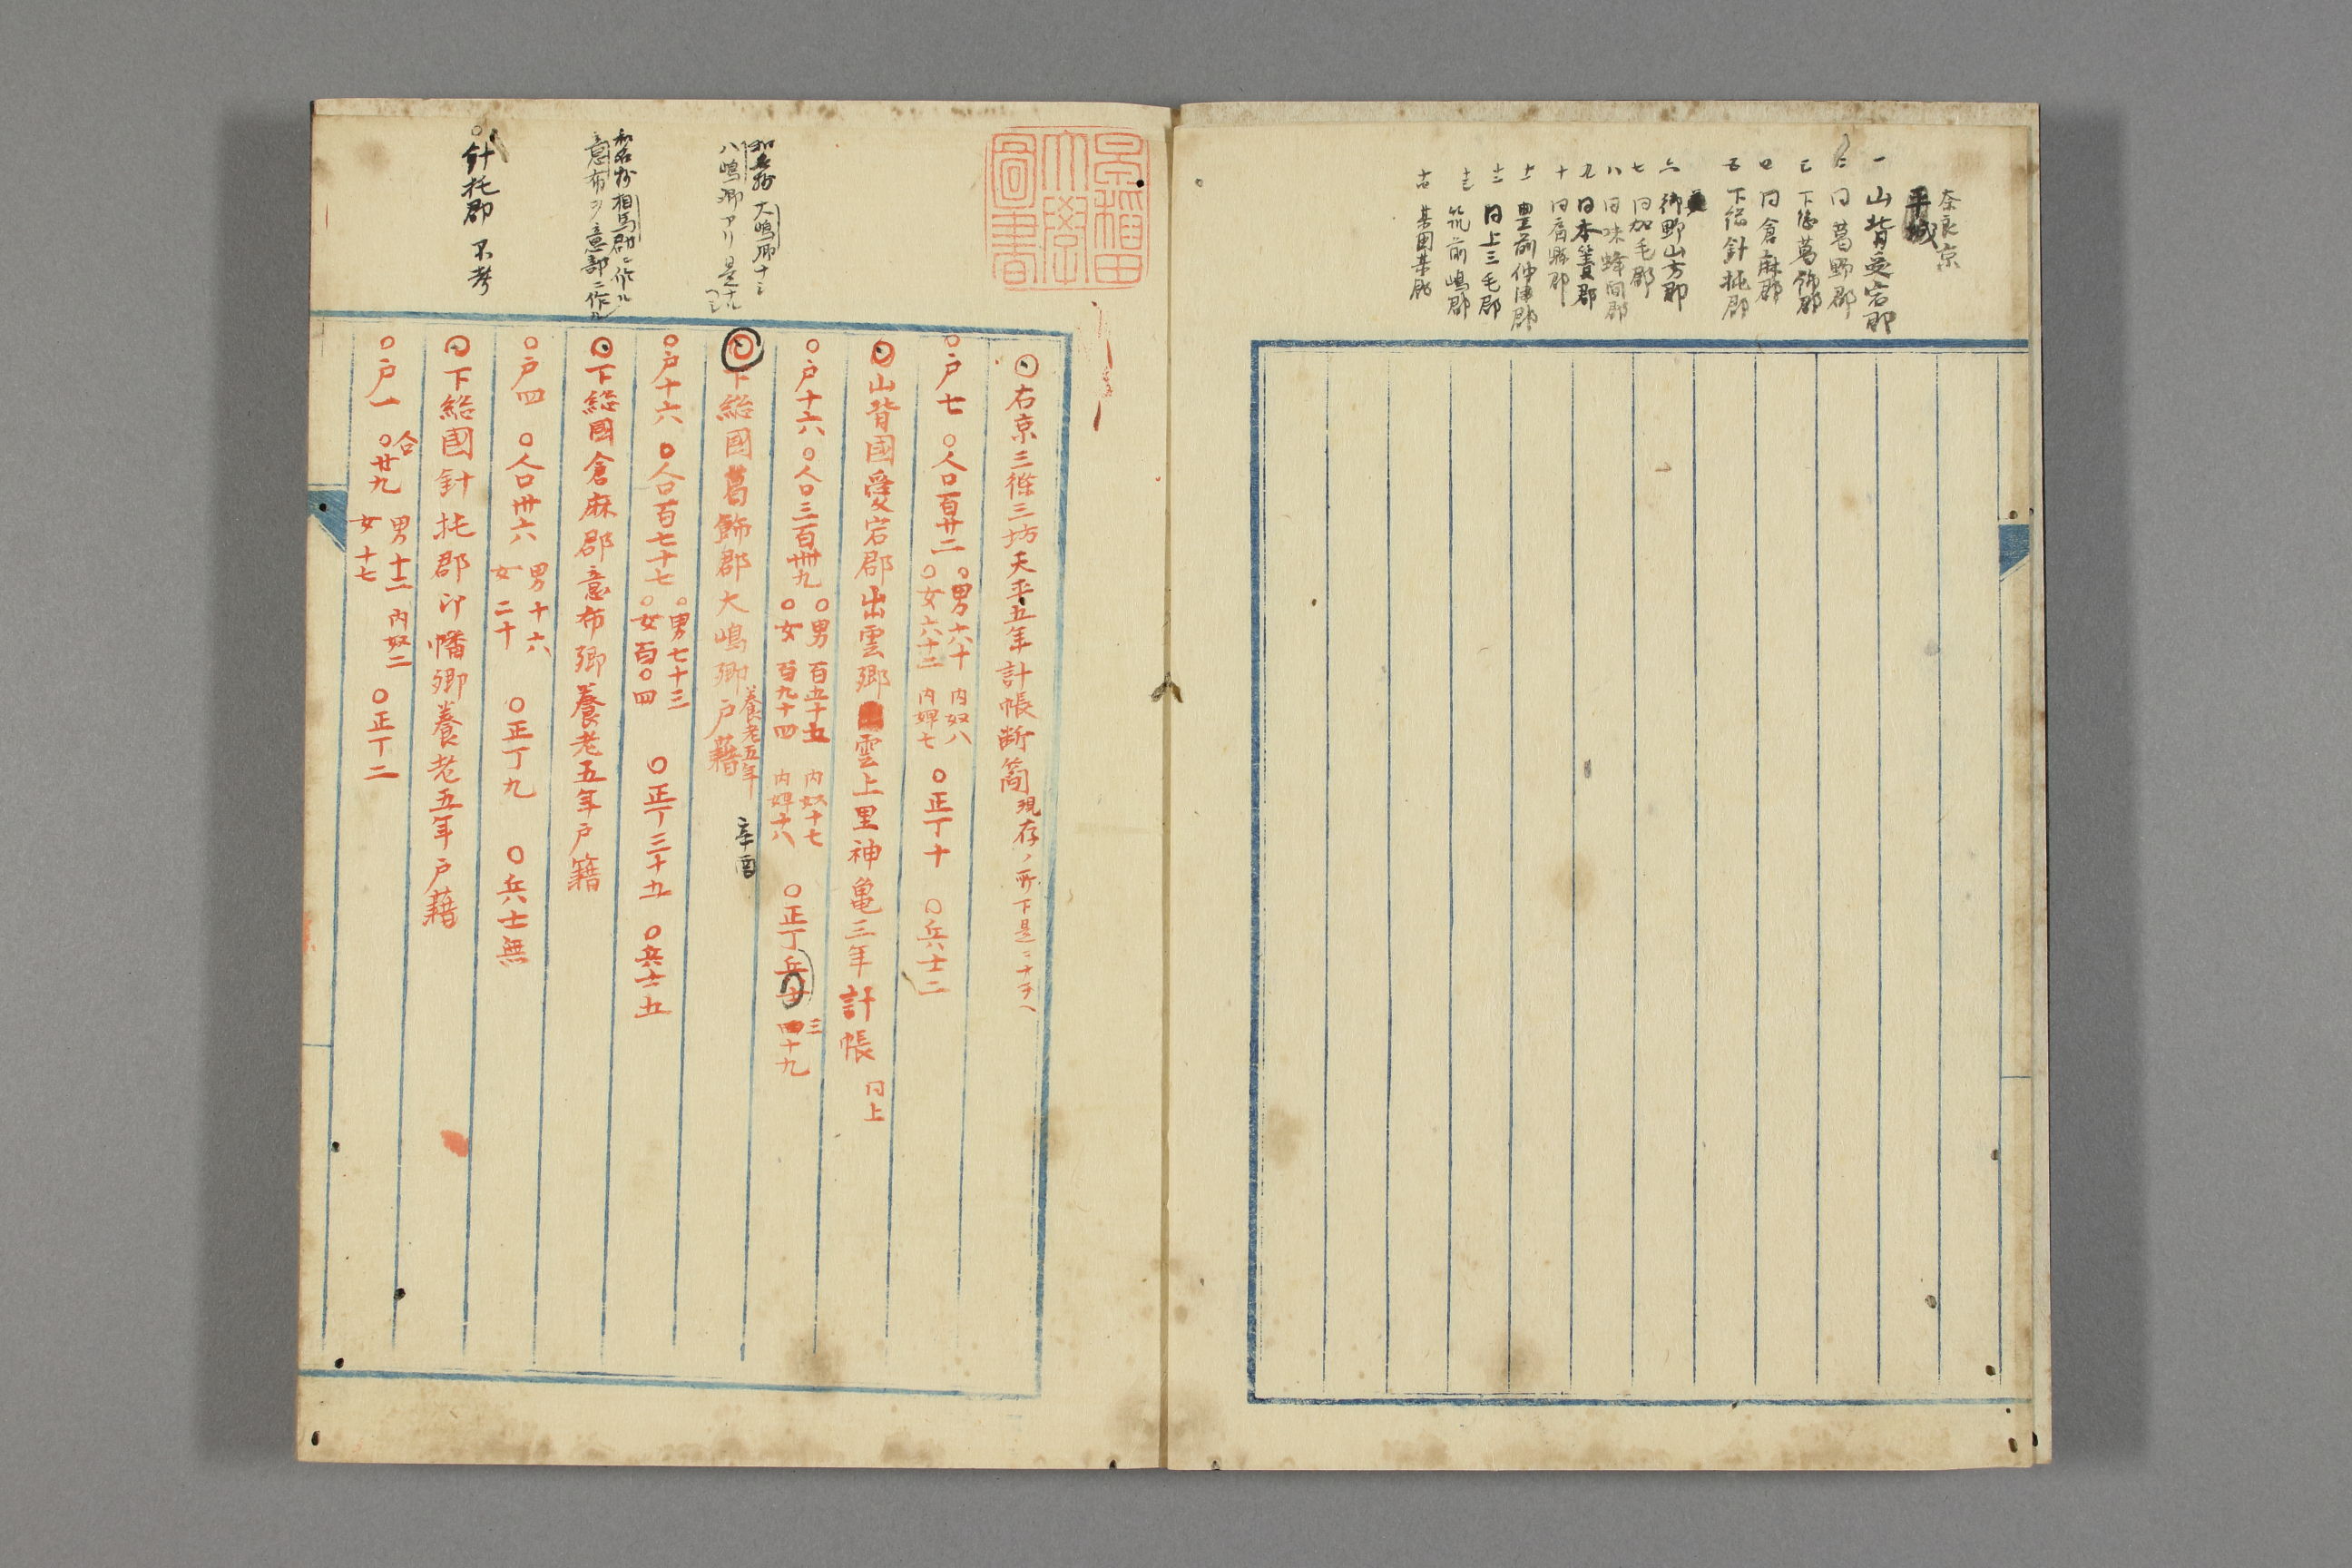 奈良京
平城
一 山背愛宕郡
二 同 葛野郡
三 下総葛飾郡
四 同倉麻郡
五 下総針托郡
六 御野山方郡
七 同加毛郡
八 同味蜂間郡
九 同本簀郡
十 同肩縣郡
十一 豊前仲津郡
十二 同上三毛郡
十三 筑前嶋郡
十四 某国某郡
早稲田大学図書
和名抄 大嶋郷ナシ
八嶋郷アリ是ナルヘシ
和名抄相馬郡ニ作ル
意布ヲ意部ニ作ル
○針托郡 不考
右京三條三坊天平五年計帳断簡現存ノ所下是ニナラヘ
○戸七 ○人口百廿二 ○男六十 内奴八 ○女六十二 内婢七 ○正丁十 ○兵士二
山背国愛宕郡出雲郷雲上里神亀三年計帳 同上
○戸十六 ○人口三百卌九 ○男百五十五 内奴十七 ○女百九十四 内婢十八 ○正丁兵士 三十九
下総國葛飾郡大嶋郷戸籍 養老五年 辛酉
○戸十六 ○人口百七十七 ○男七十三 ○女百〇四 ○正丁三十九 ○兵士五
下総國倉麻郡意布郷養老五年戸籍
○戸四 ○人口卅六 男十六 女二十 ○正丁九 ○兵士無
下総國針托郡印幡郷養老五年戸籍
○戸一 ○合廿九 男十二 内奴二 女十七 ○正丁二